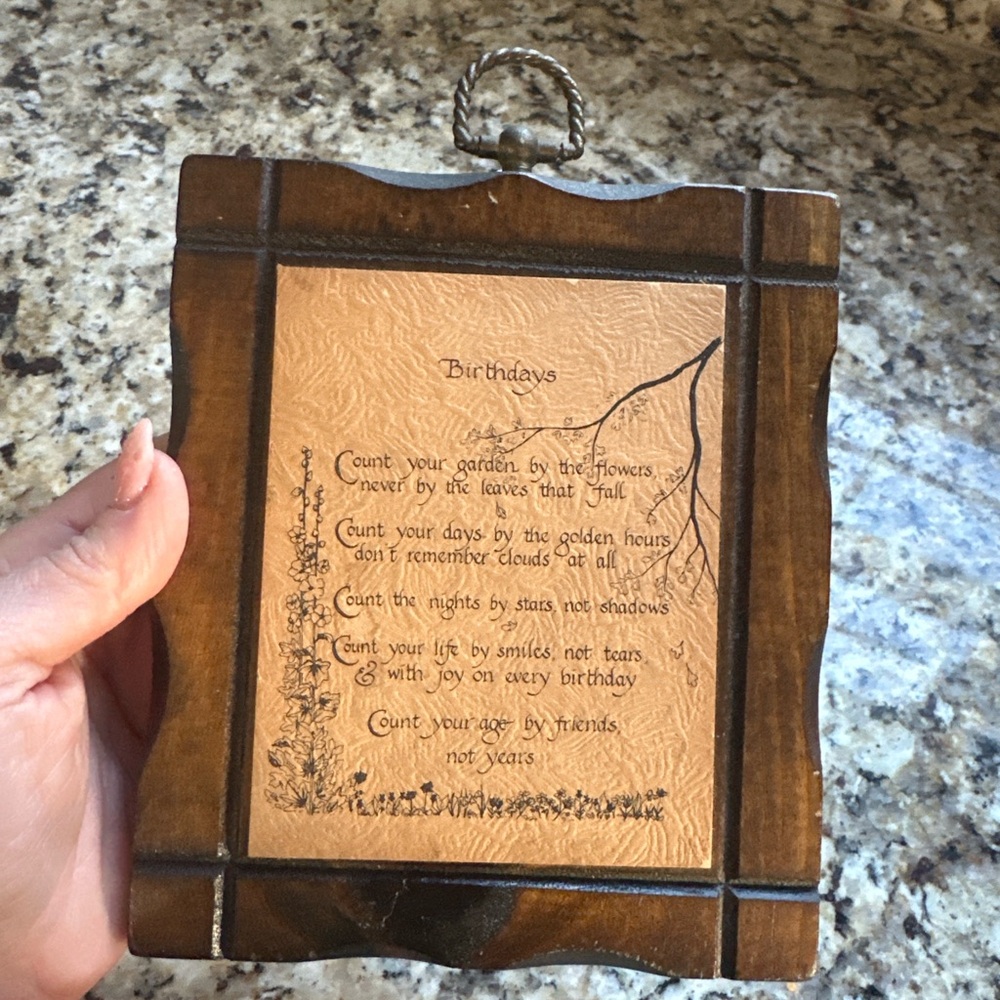 Birthdays
Count your garden by the flowers,
never by the leaves that fall
Count your days by the golden hours
don't remember clouds at all
Count the nights by stars, not shadows
Count your life by smiles, not tears,
& with joy on every birthday
Count your age by friends,
not years